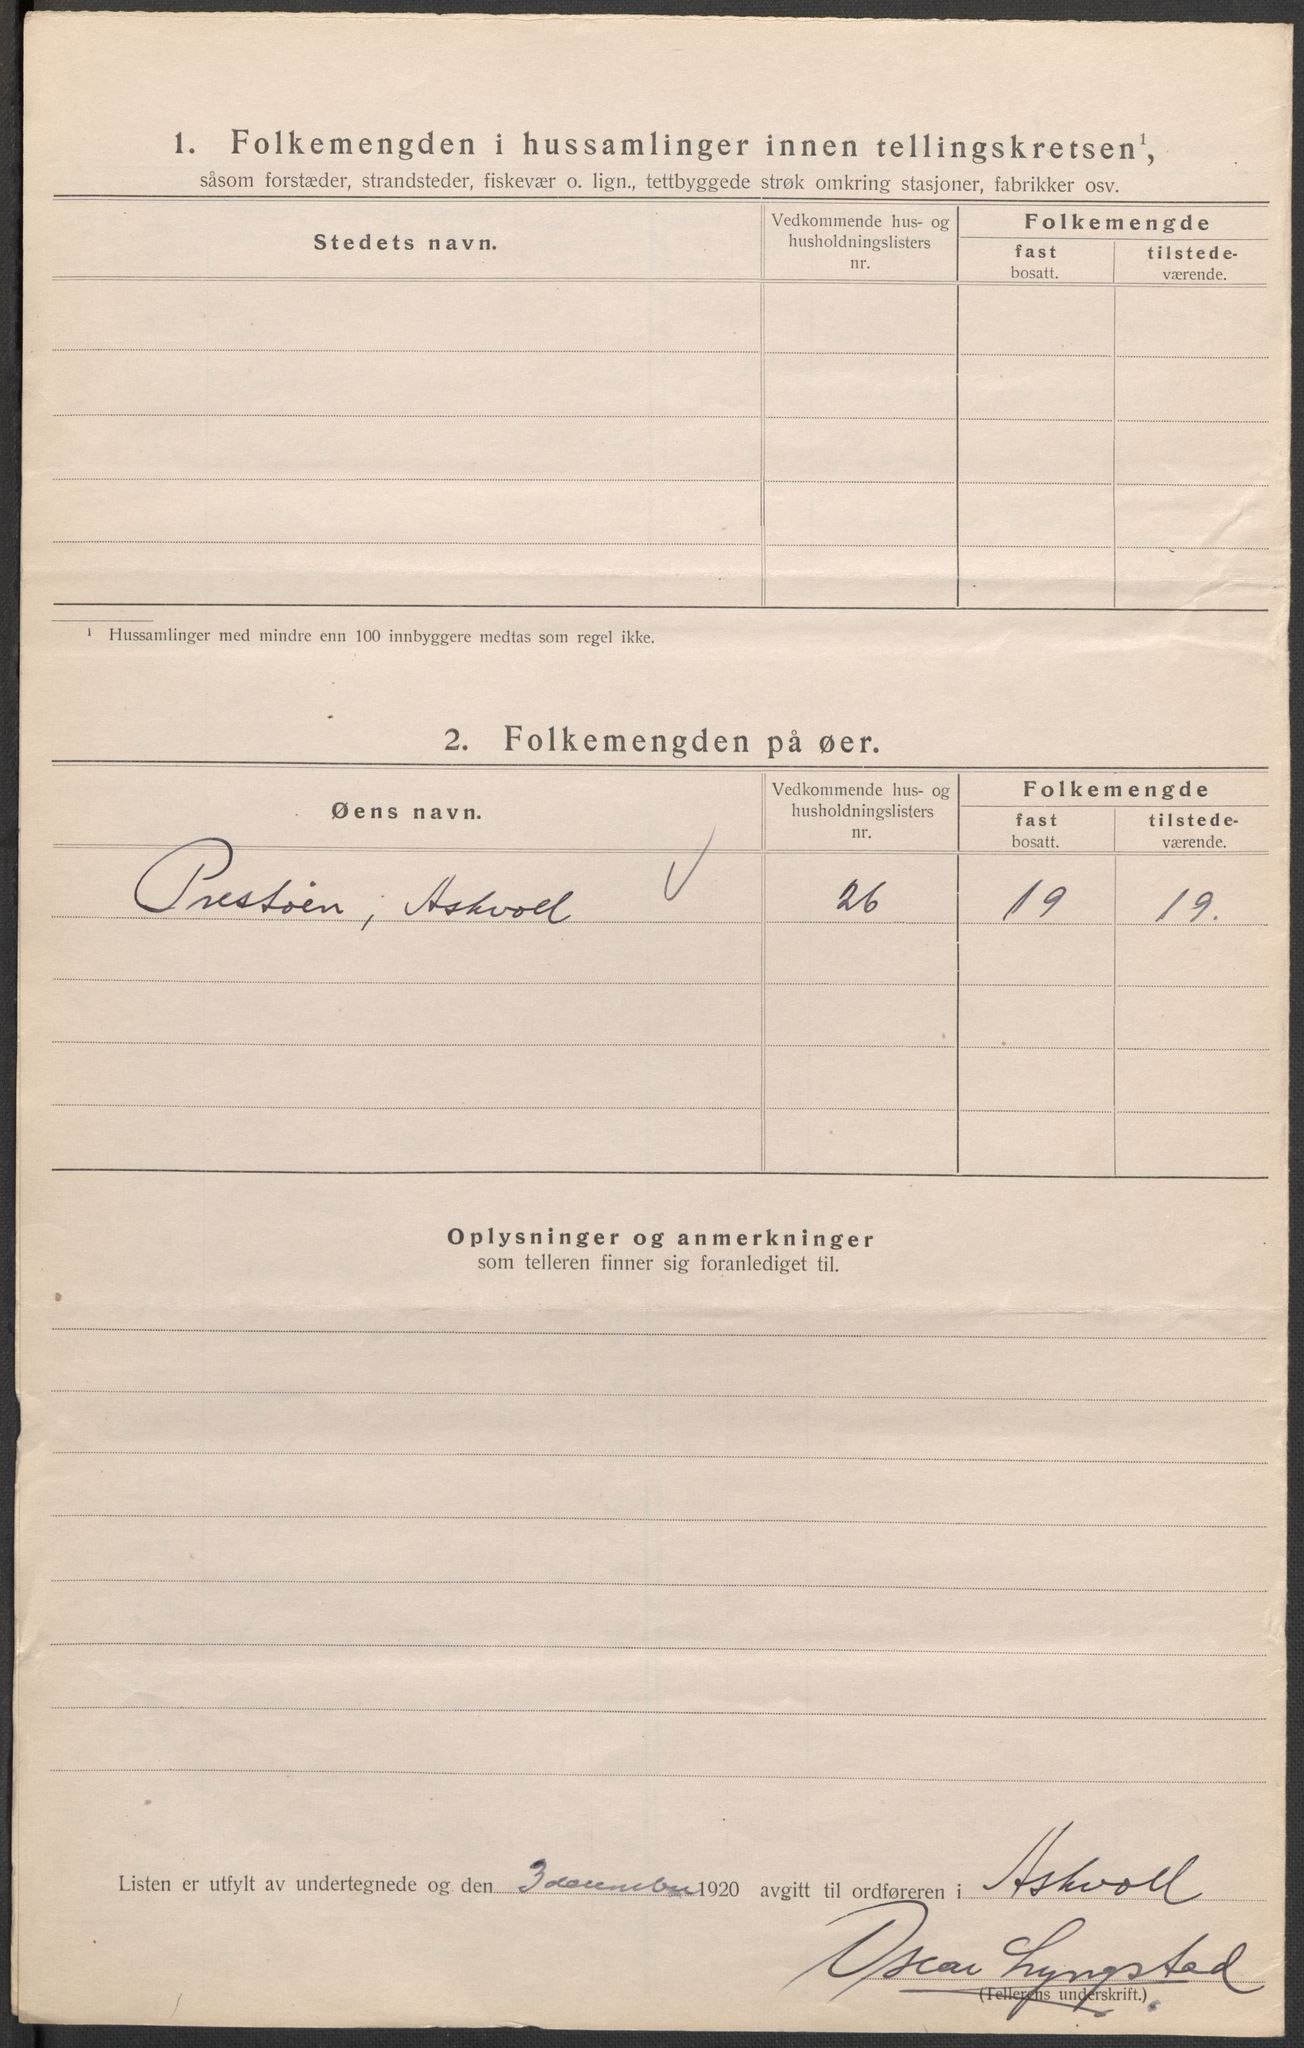 1. Folkemengden i hussamlinger innen tellingskretsen¹,
såsom forstæder, strandsteder, fiskevær o. lign., tettbyggede strøk omkring stasjoner, fabrikker osv.
Stedets navn.
Vedkommende hus- og
husholdningslisters
nr.
Folkemengde
fast
bosatt.
tilstede-
værende.
¹ Hussamlinger med mindre enn 100 innbyggere medtas som regel ikke.
2. Folkemengden på øer.
Øens navn.
Vedkommende hus- og
husholdningslisters
nr.
Folkemengde
fast
bosatt.
tilstede-
værende.
Prestøen, Askvoll 26 19 19.
Oplysninger og anmerkninger
som telleren finner sig foranlediget til.
Listen er utfylt av undertegnede og den 3 december 1920 avgitt til ordføreren i Askvoll
Oscar Lyngstad
(Tellerens underskrift.)